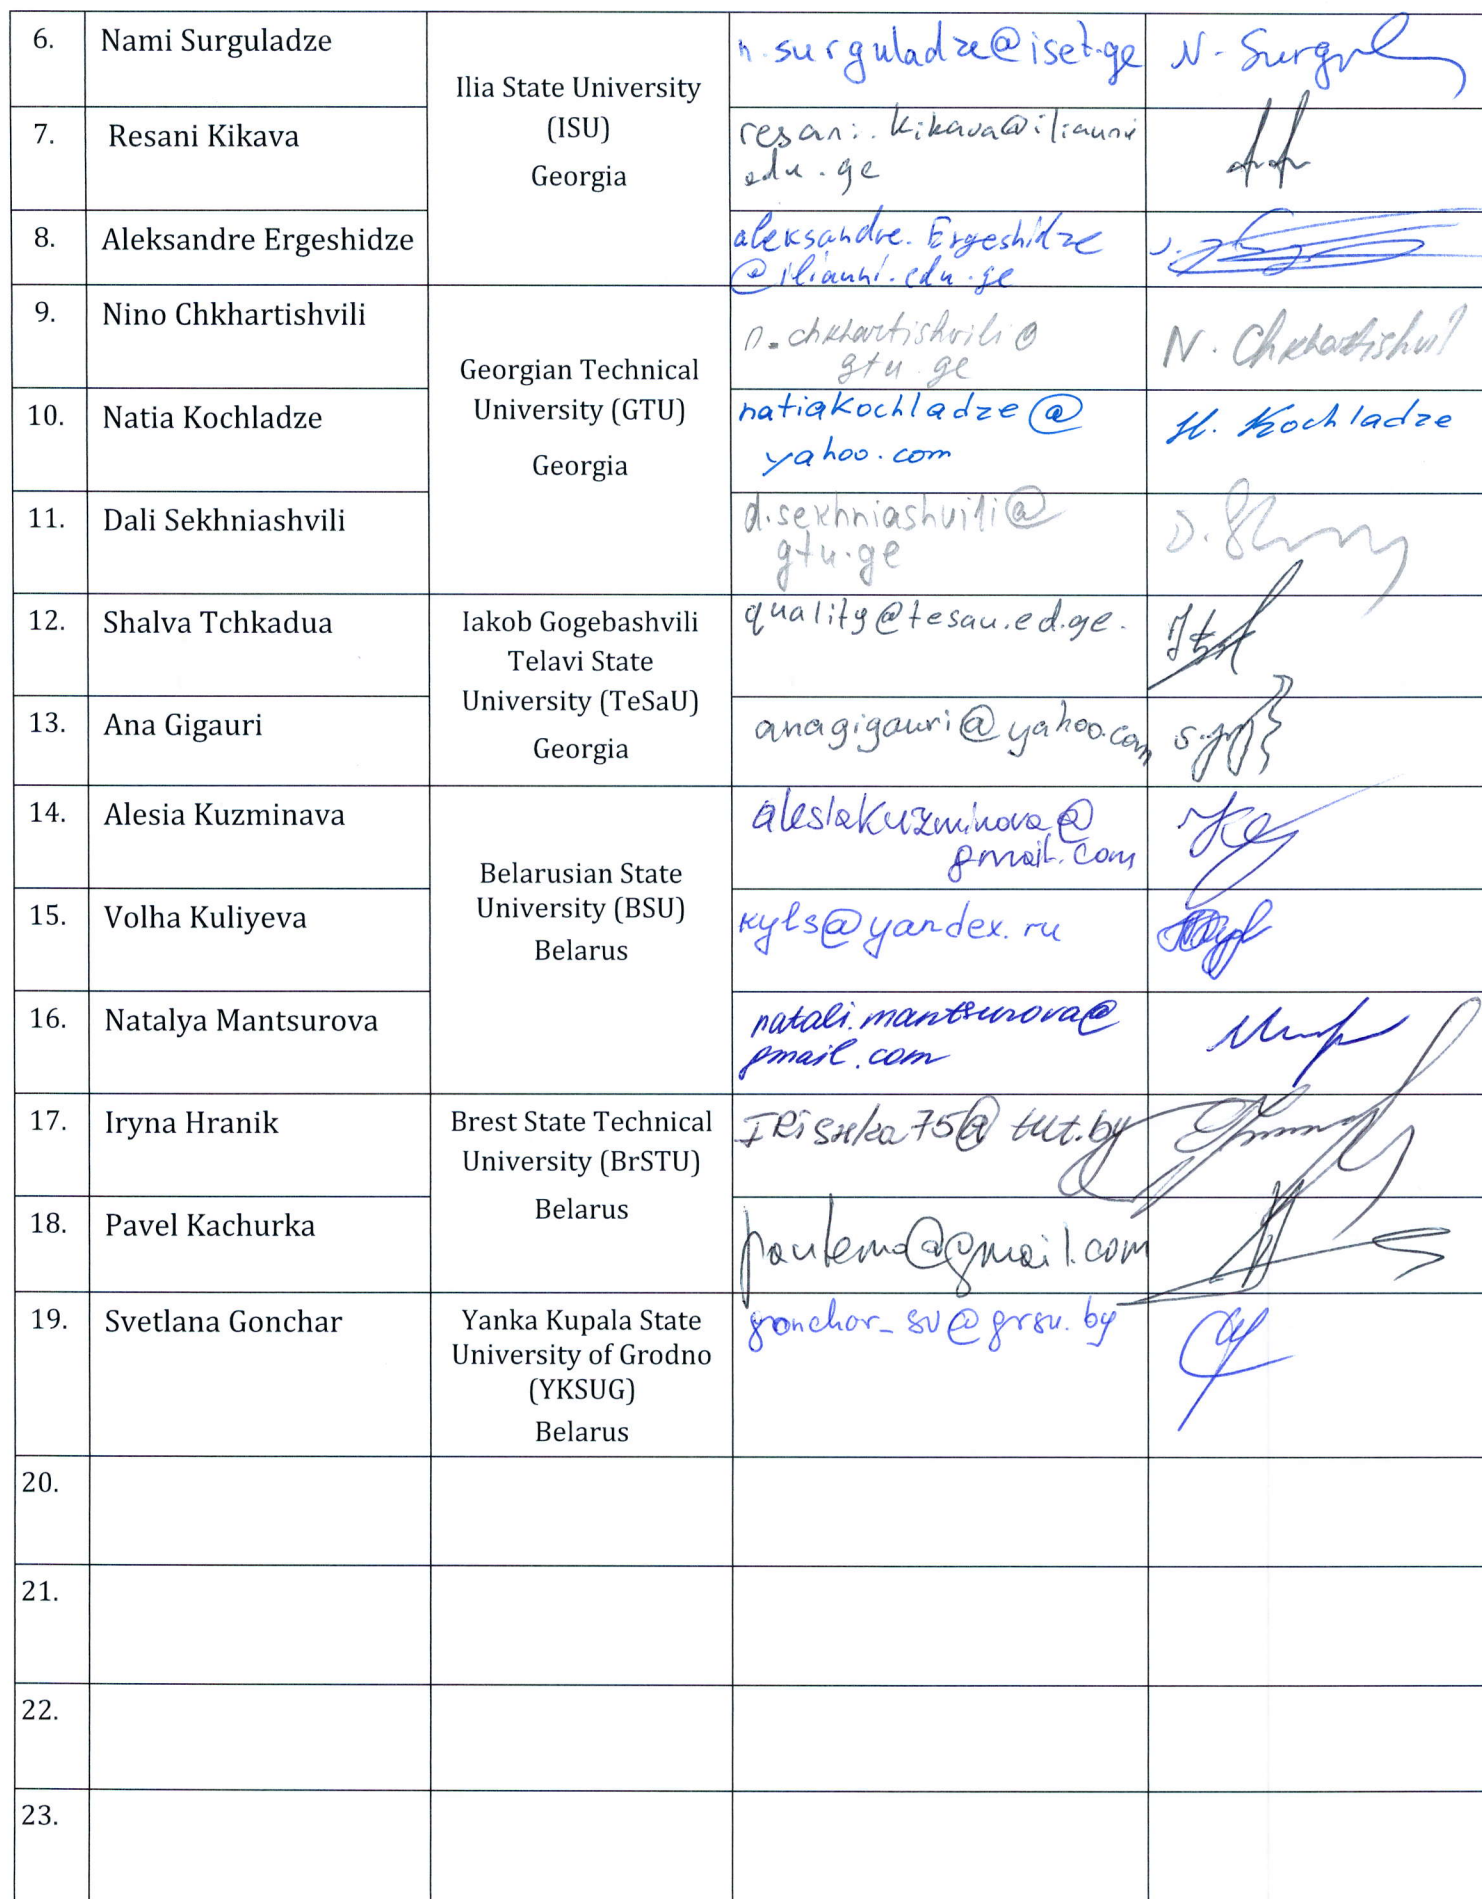 6.
Nami Surguladze
Ilia State University
(ISU)
Georgia
n.surguladze@iset.ge
N. Surgul
7.
Resani Kikava
resani.kikava@iliauni
edu.ge
8.
Aleksandre Ergeshidze
aleksandre.Ergeshidze
@iliauni.edu.ge
9.
Nino Chkhartishvili
Georgian Technical
University (GTU)
Georgia
n.chkhartishvili@
gtu.ge
N. Chkhartishvil
10.
Natia Kochladze
natiakochladze@
yahoo.com
N. Kochladze
11.
Dali Sekhniashvili
d.sekhniashvili@
gtu.ge
12.
Shalva Tchkadua
Iakob Gogebashvili
Telavi State
University (TeSaU)
Georgia
quality@tesau.ed.ge.
13.
Ana Gigauri
anagigauri@yahoo.com
14.
Alesia Kuzminava
Belarusian State
University (BSU)
Belarus
alesiakuzminova@
gmail.com
15.
Volha Kuliyeva
kyls@yandex.ru
16.
Natalya Mantsurova
natali.mantsurova@
gmail.com
17.
Iryna Hranik
Brest State Technical
University (BrSTU)
Belarus
18.
Pavel Kachurka
19.
Svetlana Gonchar
Yanka Kupala State
University of Grodno
(YKSUG)
Belarus
gonchar_sv@grsu.by
20.
21.
22.
23.